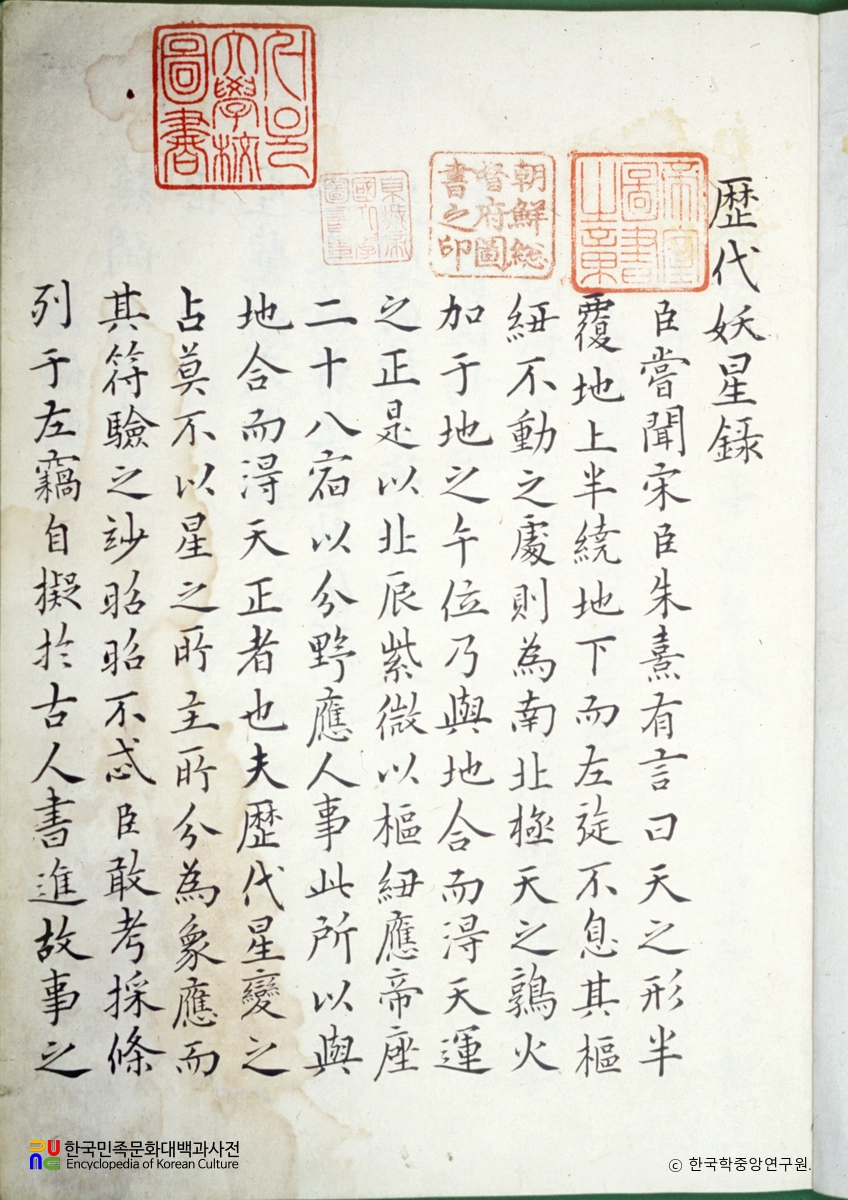 歷代妖星錄
臣嘗聞宋臣朱熹有言曰天之形半
覆地上半繞地下而左旋不息其樞
紐不動之處則為南北極天之鶉火
加于地之午位乃與地合而淂天運
之正是以北辰紫微以樞紐應帝座
二十八宿以分野應人事此所以與
地合而淂天正者也夫歷代星變之
占莫不以星之所主所分為象應而
其符驗之玅昭昭不忒臣敢考採條
列于左竊自擬於古人書進故事之
帝室圖書之章
朝鮮総督府圖書之印
大學校圖書
한국민족문화대백과사전
Encyclopedia of Korean Culture
© 한국학중앙연구원.